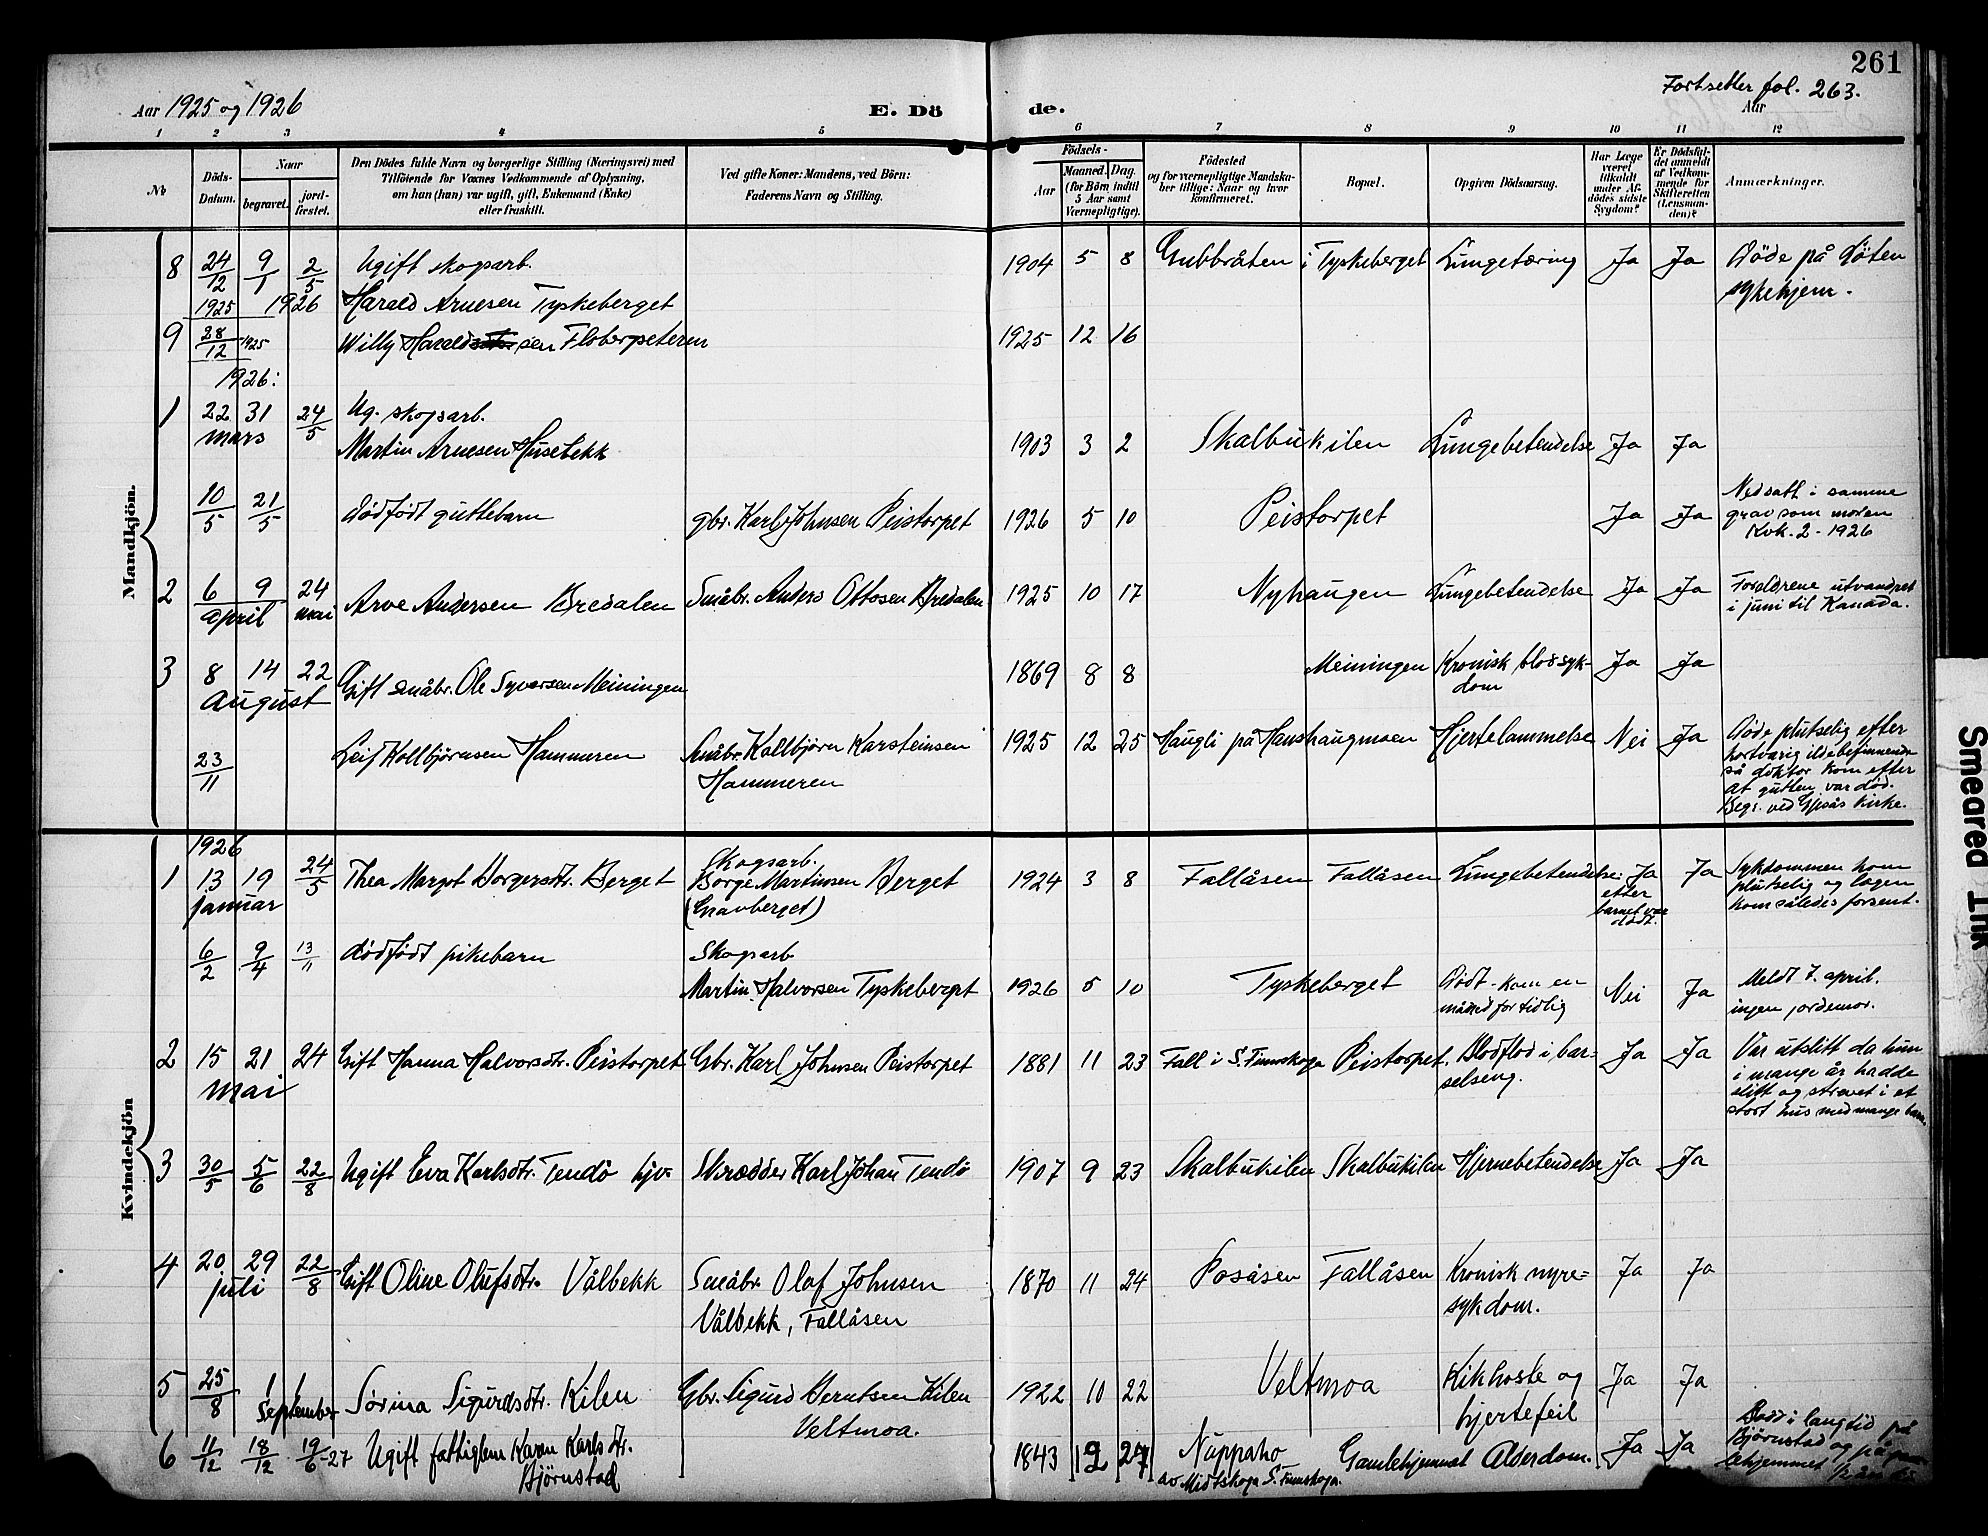 261
Fortsetter fol. 263.
Aar 1925 og 1926 E. Dö de. Aar
1 2 3 4 5 6 7 8 9 10 11 12
No
Döds-Datum.
Naar
begravet.
jord-fæstet.
Den Dödes fulde Navn og borgerlige Stilling (Næringsvei) med
Tilföiende for Voxnes Vedkommende af Oplysning,
om han (hun) var ugift, gift, Enkemand (Enke)
eller fraskilt.
Ved gifte Koner: Mandens, ved Börn:
Faderens Navn og Stilling.
Födsels-
Aar
Maaned. Dag.
(for Börn indtil
5 Aar samt
Værnepligtige).
Födested
og for værnepligtige Mandska-
ber tillige: Naar og hvor
konfirmeret.
Bopæl.
Opgiven Dödsaarsag.
Har Læge
været
tilkaldt
under Af-
dödes sidste
Sygdom?
Er Dödsfal-
det anmeldt
af Vedkom-
mende for
Skifteretten
(Lensman-
den)?
Anmærkninger.
Mandkjön.
8 24/12 1925 9/1 2/5 1926 Ugift skogsarb.
Harald Arnesen Tyskeberget 1904 5 8 Gubbråten i Tyskeberget Lungetæring Ja Ja Döde på Löten
sykehjem.
9 28/12 1925 Willy Haraldsen Flobergseteren 1925 12 16
1926:
1 22 31 mars 24/5 Ug. skogsarb.
Martin Arnesen Husebekk 1903 3 2 Skalbukilen Lungebetendelse Ja Ja
10/5 21/5 dödfödt guttebarn gbr. Karl Johnsen Peistorpet 1926 5 10 Peistorpet Ja Ja Nedsatt i samme
grav som moren
Kvk. 2 - 1926
2 6 9 april 24 mai Arve Andersen Bredalen Småbr. Anders Ottosen Bredalen 1925 10 17 Nyhaugen Lungebetendelse Ja Ja Foreldrene utvandret
i juni til Kanada.
3 8 14 22 August Gift småbr. Ole Syversen Meiningen 1869 8 8 Meiningen Kronisk blodsyk-
dom Ja Ja
23/11 Leif Kolbjörnsen Hammeren Småbr. Kolbjörn Karsteinsen
Hammeren 1925 12 25 Haugli på Hanshaugmoen Hjertelammelse Nei Ja Döde plutselig efter
kortvarig ildebefinnende
så doktor kom efter
at gutten var död.
Begr. ved Gjesås kirke.
Kvindekjön
1926
1 13 19 januar 24/5 Thea Margot Borgersdtr. Berget Skogsarb.
Borge Martinsen Berget
(Gravberget) 1924 3 8 Fallåsen Fallåsen Lungebetendelse. Ja
efter
barnet var
dödt. Ja Sykdommen kom
plutselig og lægen
kom således forsent.
6/2 9/4 13/11 dödfödt pikebarn Skogsarb
Martin Halvorsen Tyskeberget 1926 5 10 Tyskeberget Dödt - kom en
måned for tidlig Nei Ja Meldt 7. april.
ingen jordemor.
2 15 21 24 mai Gift Hanna Halvorsdtr. Peistorpet Gbr. Karl Johnsen Peistorpet 1881 11 23 Fall i S. Finnskoga Peistorpet. Blodflod i bar-
selseng. Ja Ja Var utslitt da hun
i mange år hadde
slitt og strevet i et
stort hus med mange barn.
3 30/5 5/6 22/8 Ugift Eva Karlsdtr. Tendö hjv. Skrædder Karl Johan Tendö 1907 9 23 Skalbukilen Skalbukilen Hjernebetendelse Ja Ja
4 20 29 juli 22/8 Gift Oline Olufsdtr. Vålbekk Småbr. Olaf Johnsen
Vålbekk, Fallåsen 1870 11 24 Posåsen Fallåsen Kronisk nyre-
sykdom. Ja Ja
5 25/8 1 1 September Sörina Sigurdsdtr. Kilen Gbr. Sigurd Berntsen Kilen
Veltmoa. 1922 10 22 Veltmoa Kikhoste og
hjertefeil Ja Ja
6 11/12 18/12 19/6-27 Ugift fattiglem Karen Karlsdtr.
Björnstad 1843 12 27 Nuppaho
av Midtskoga S. Finnskoga. Gamlehjemmet Alderdom. Ja Ja Bodd i lang tid på
Björnstad og på
Smeared Ink